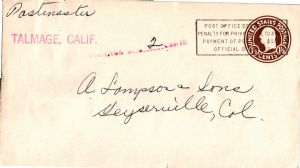 Postmaster
TALMAGE, CALIF.
2
POST OFFICE
PENALTY FOR
PAYMENT OF
OFFICIAL
UNITED STATES POSTAGE
CENTS
A. Lampson & Sons
Geyserville, Cal.